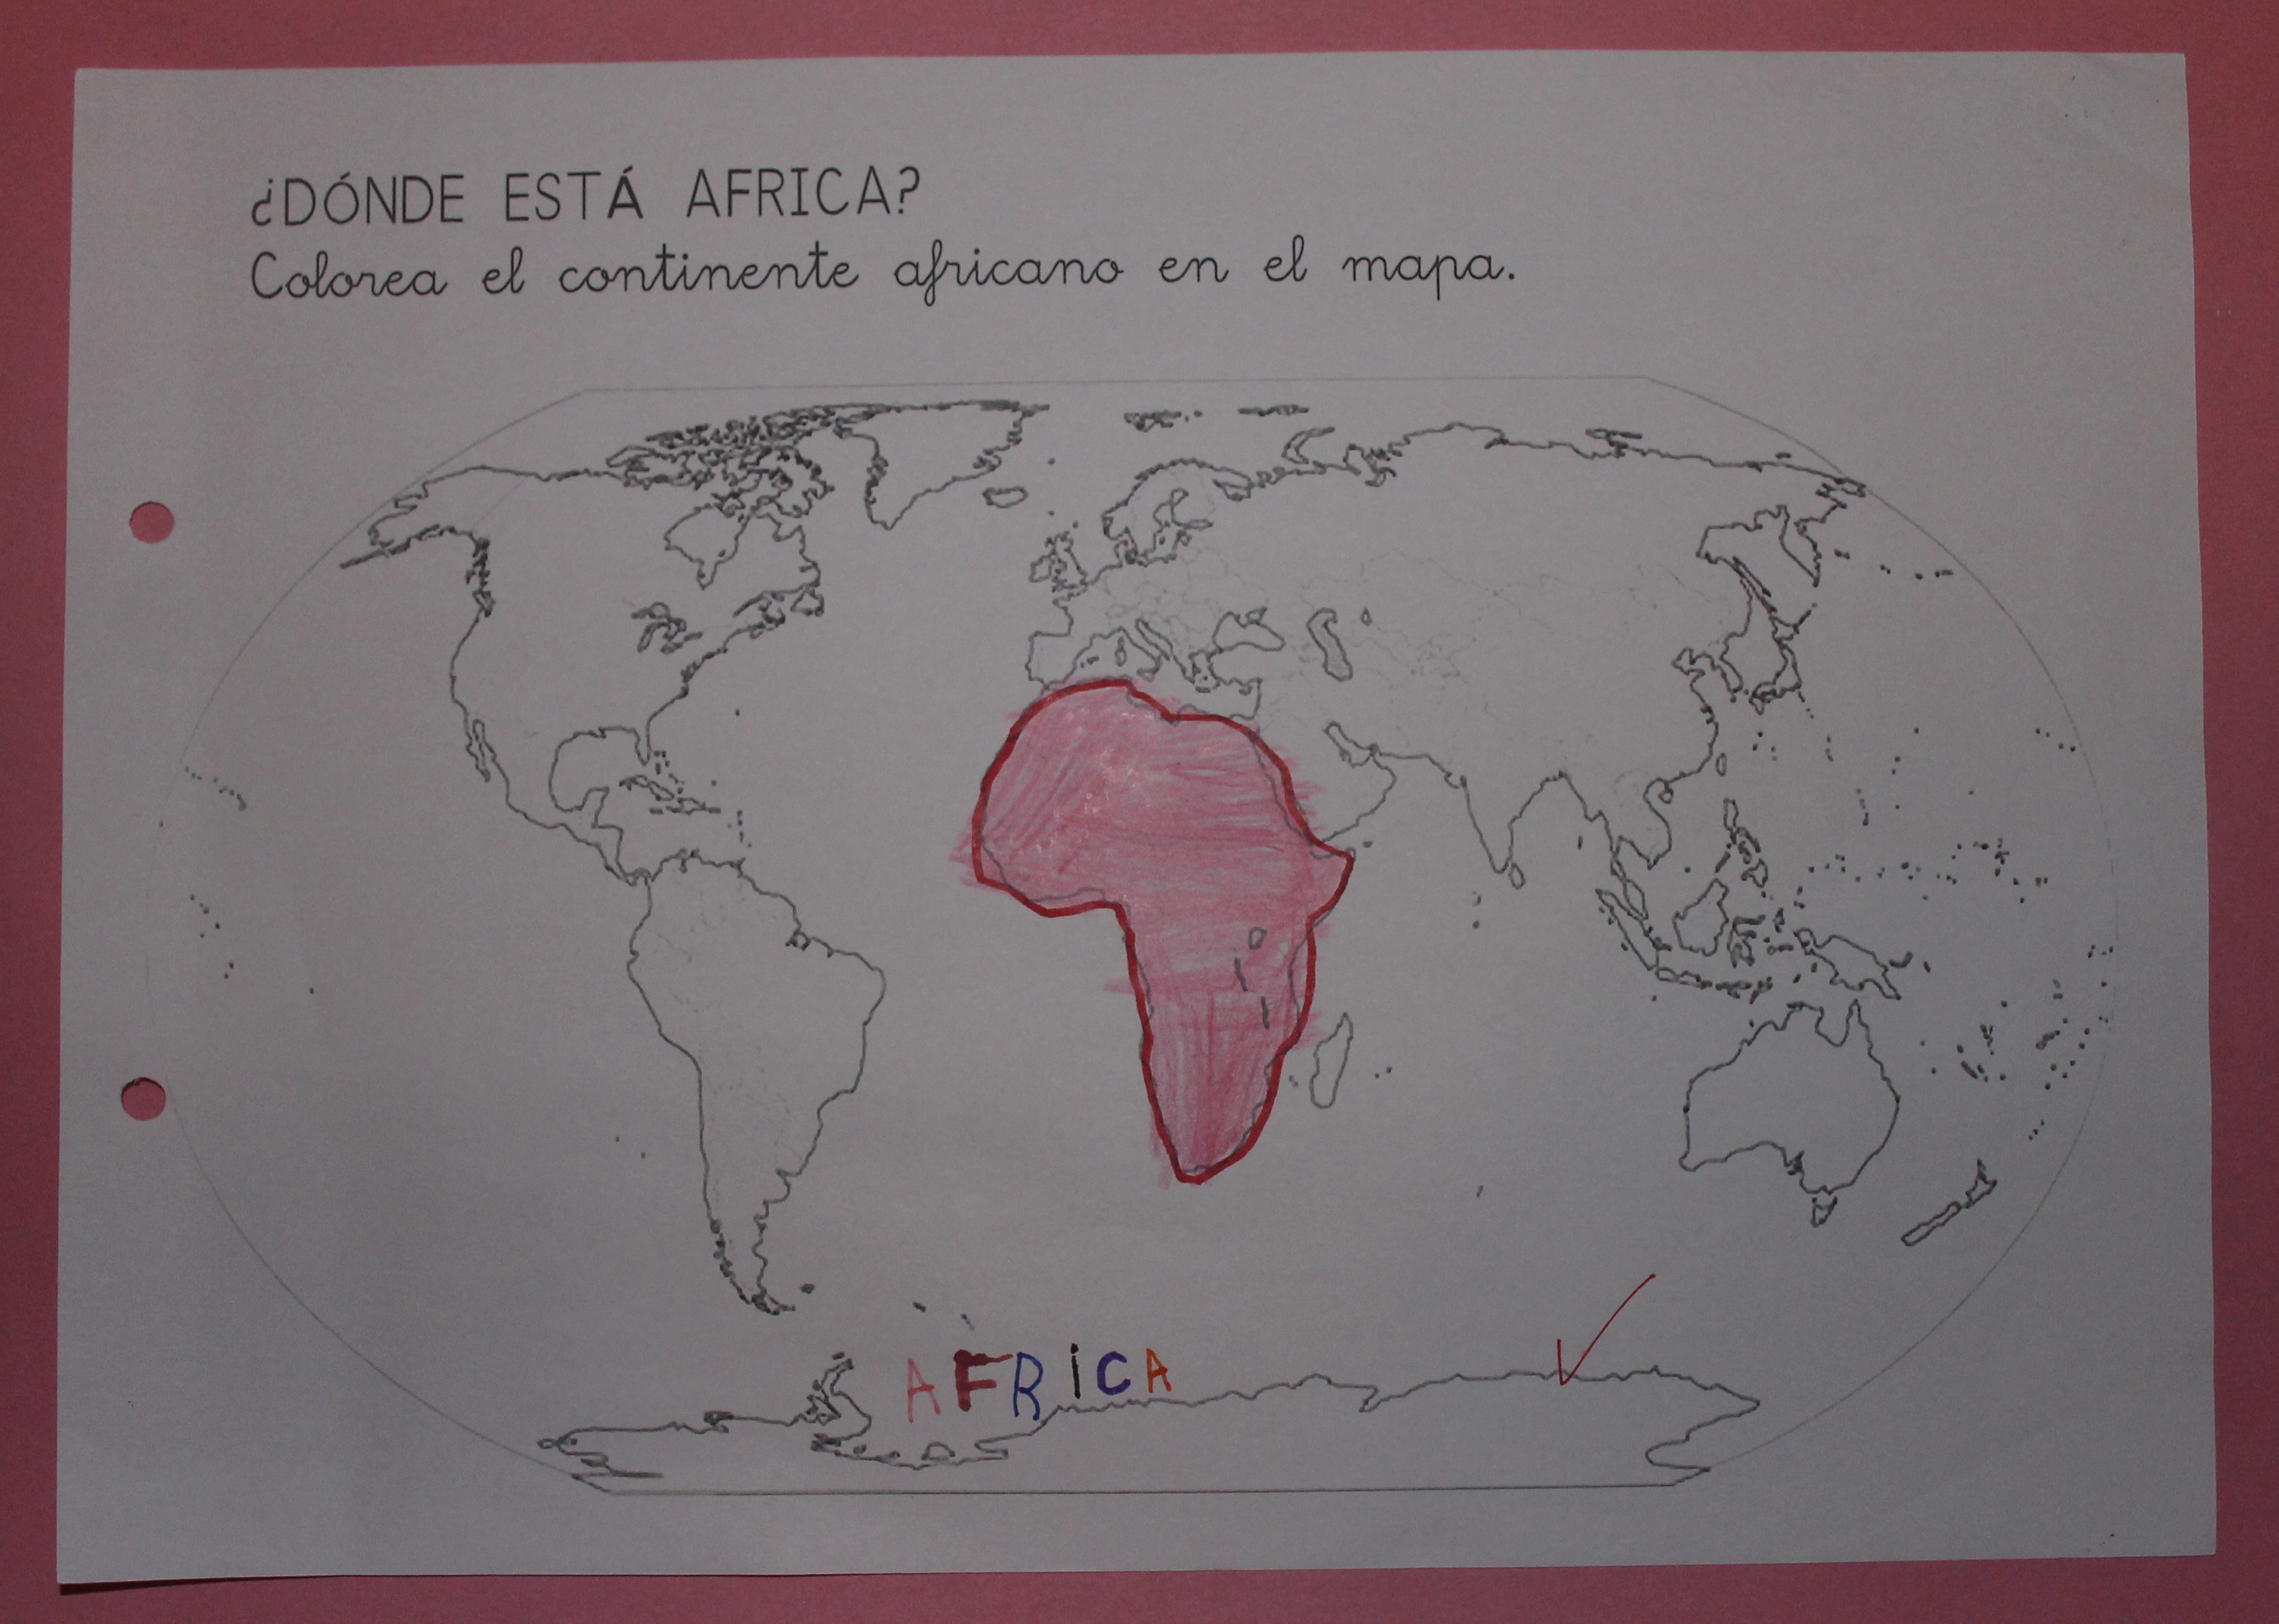 ¿DÓNDE ESTÁ AFRICA?
Colorea el continente africano en el mapa.
AFRiCA